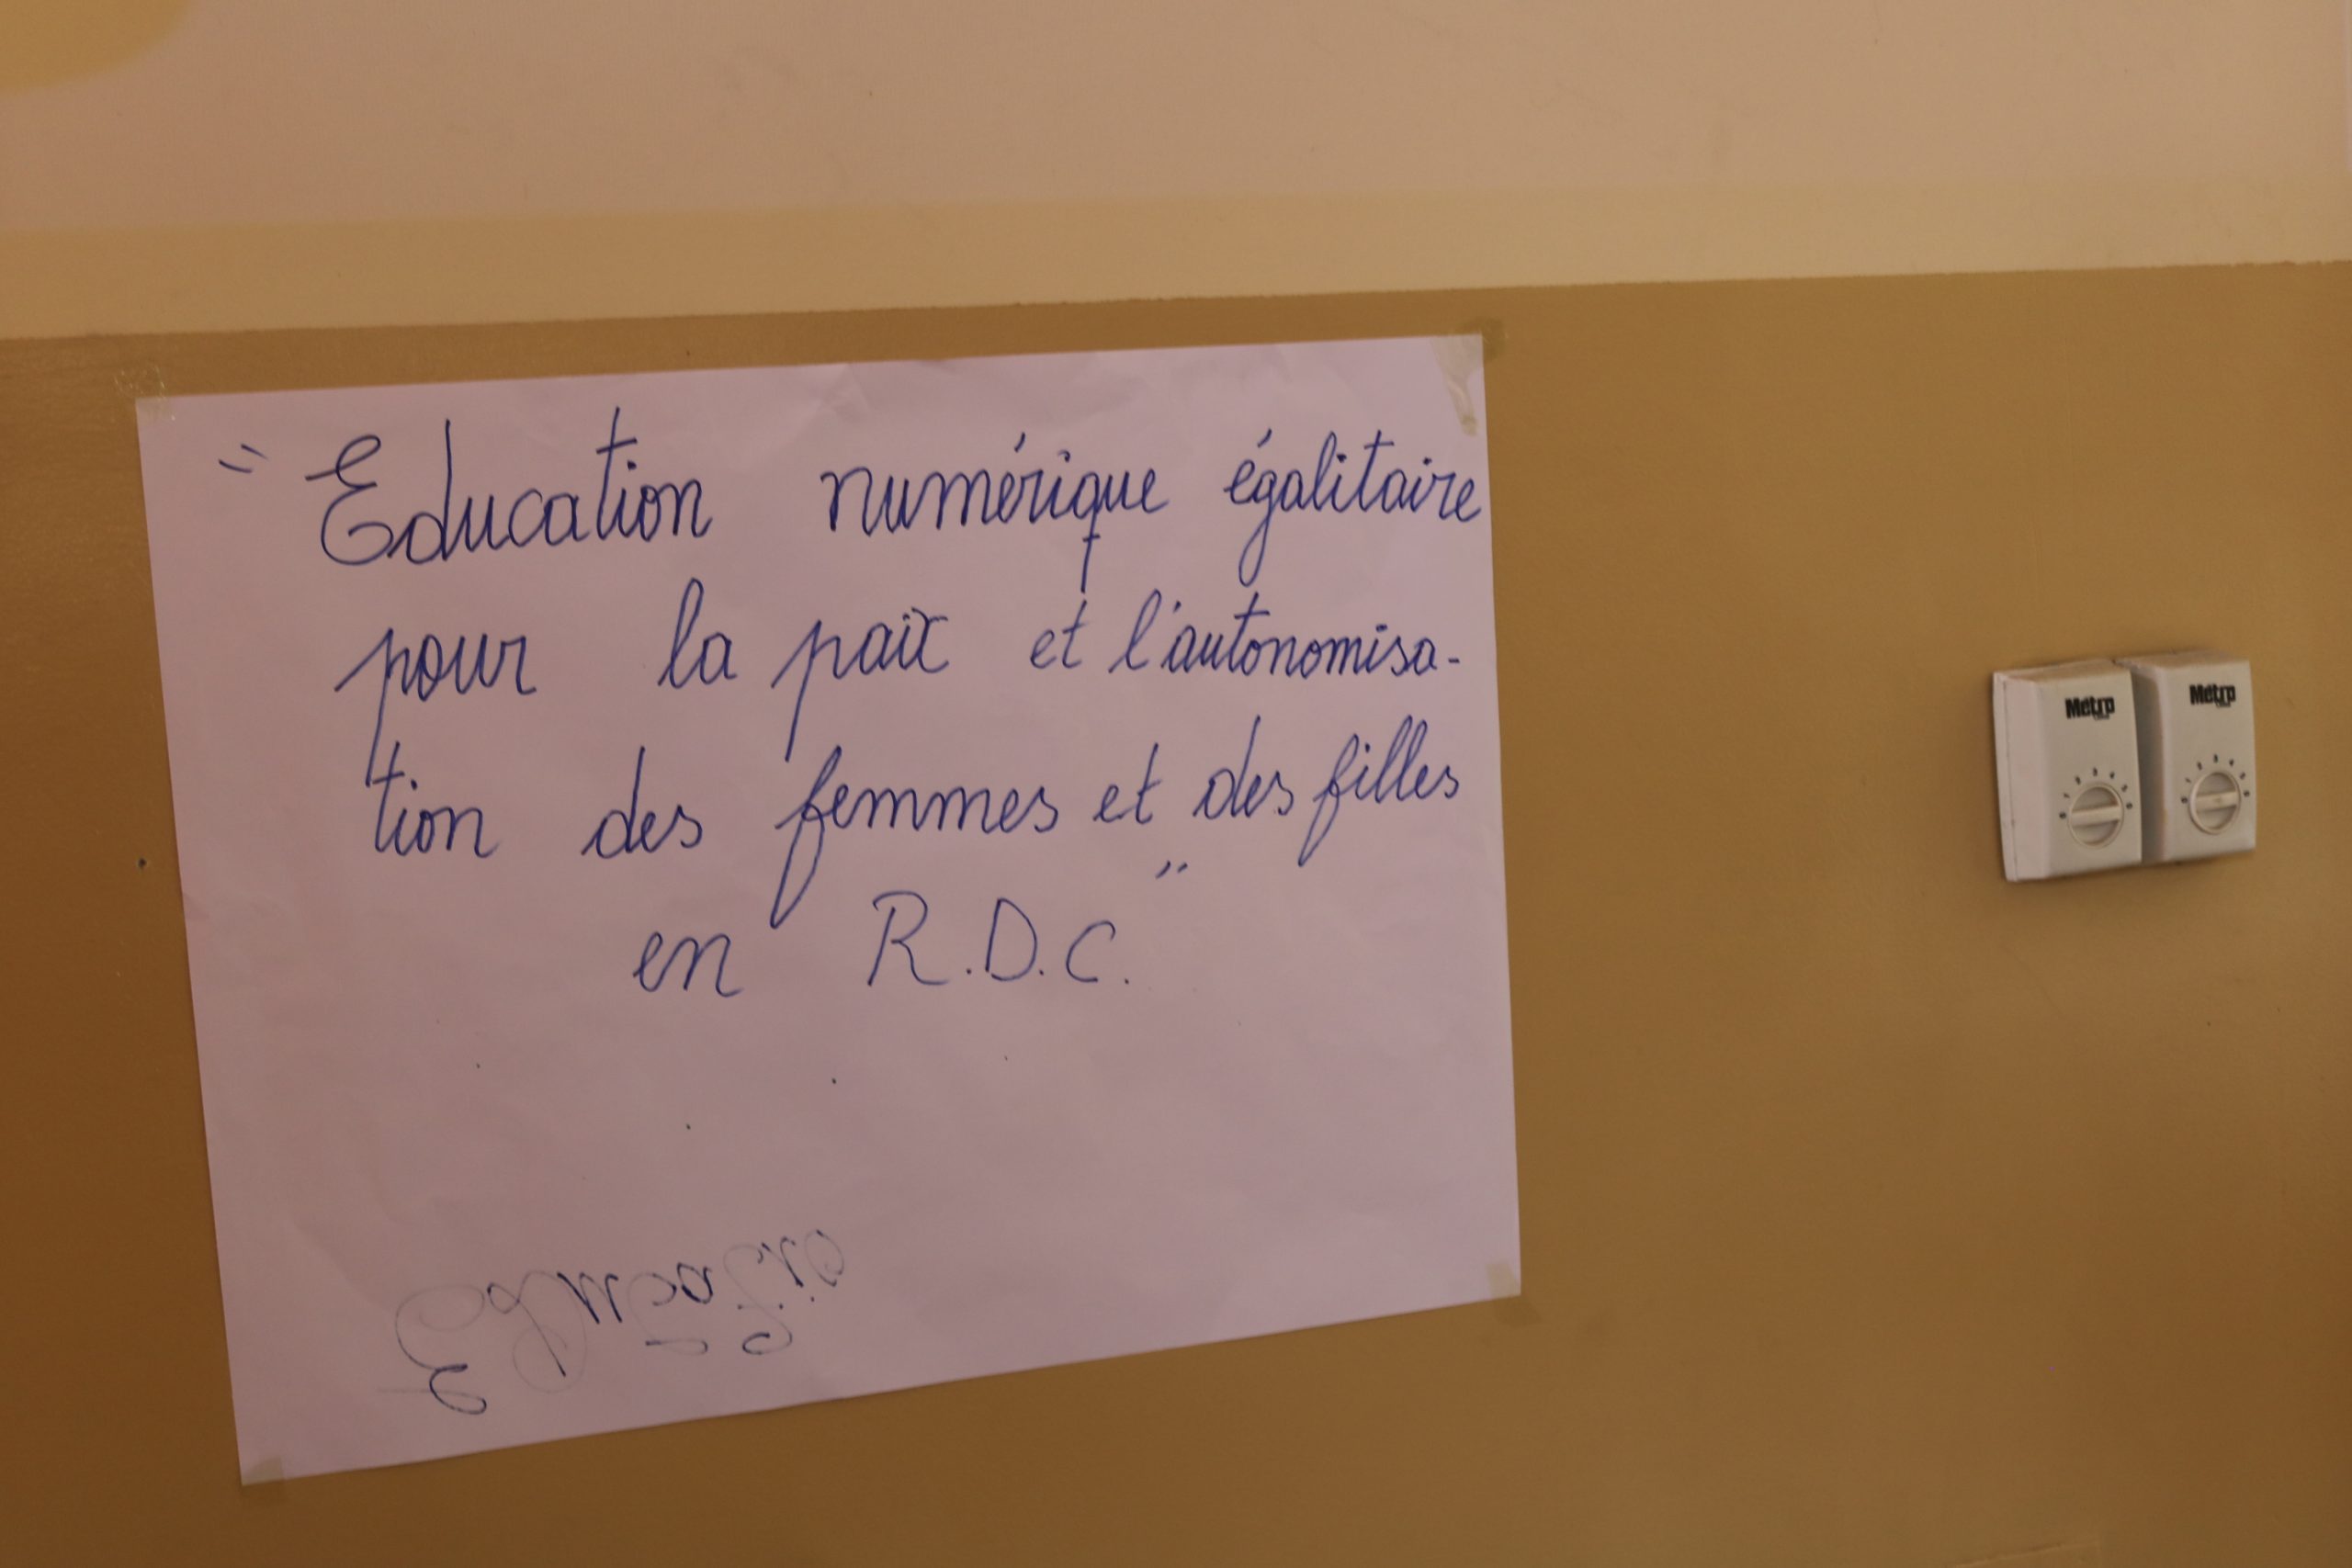 " Education numérique égalitaire
pour la paix et l'autonomisa-
tion des femmes et des filles
en R.D.C. "
Métro
Métro